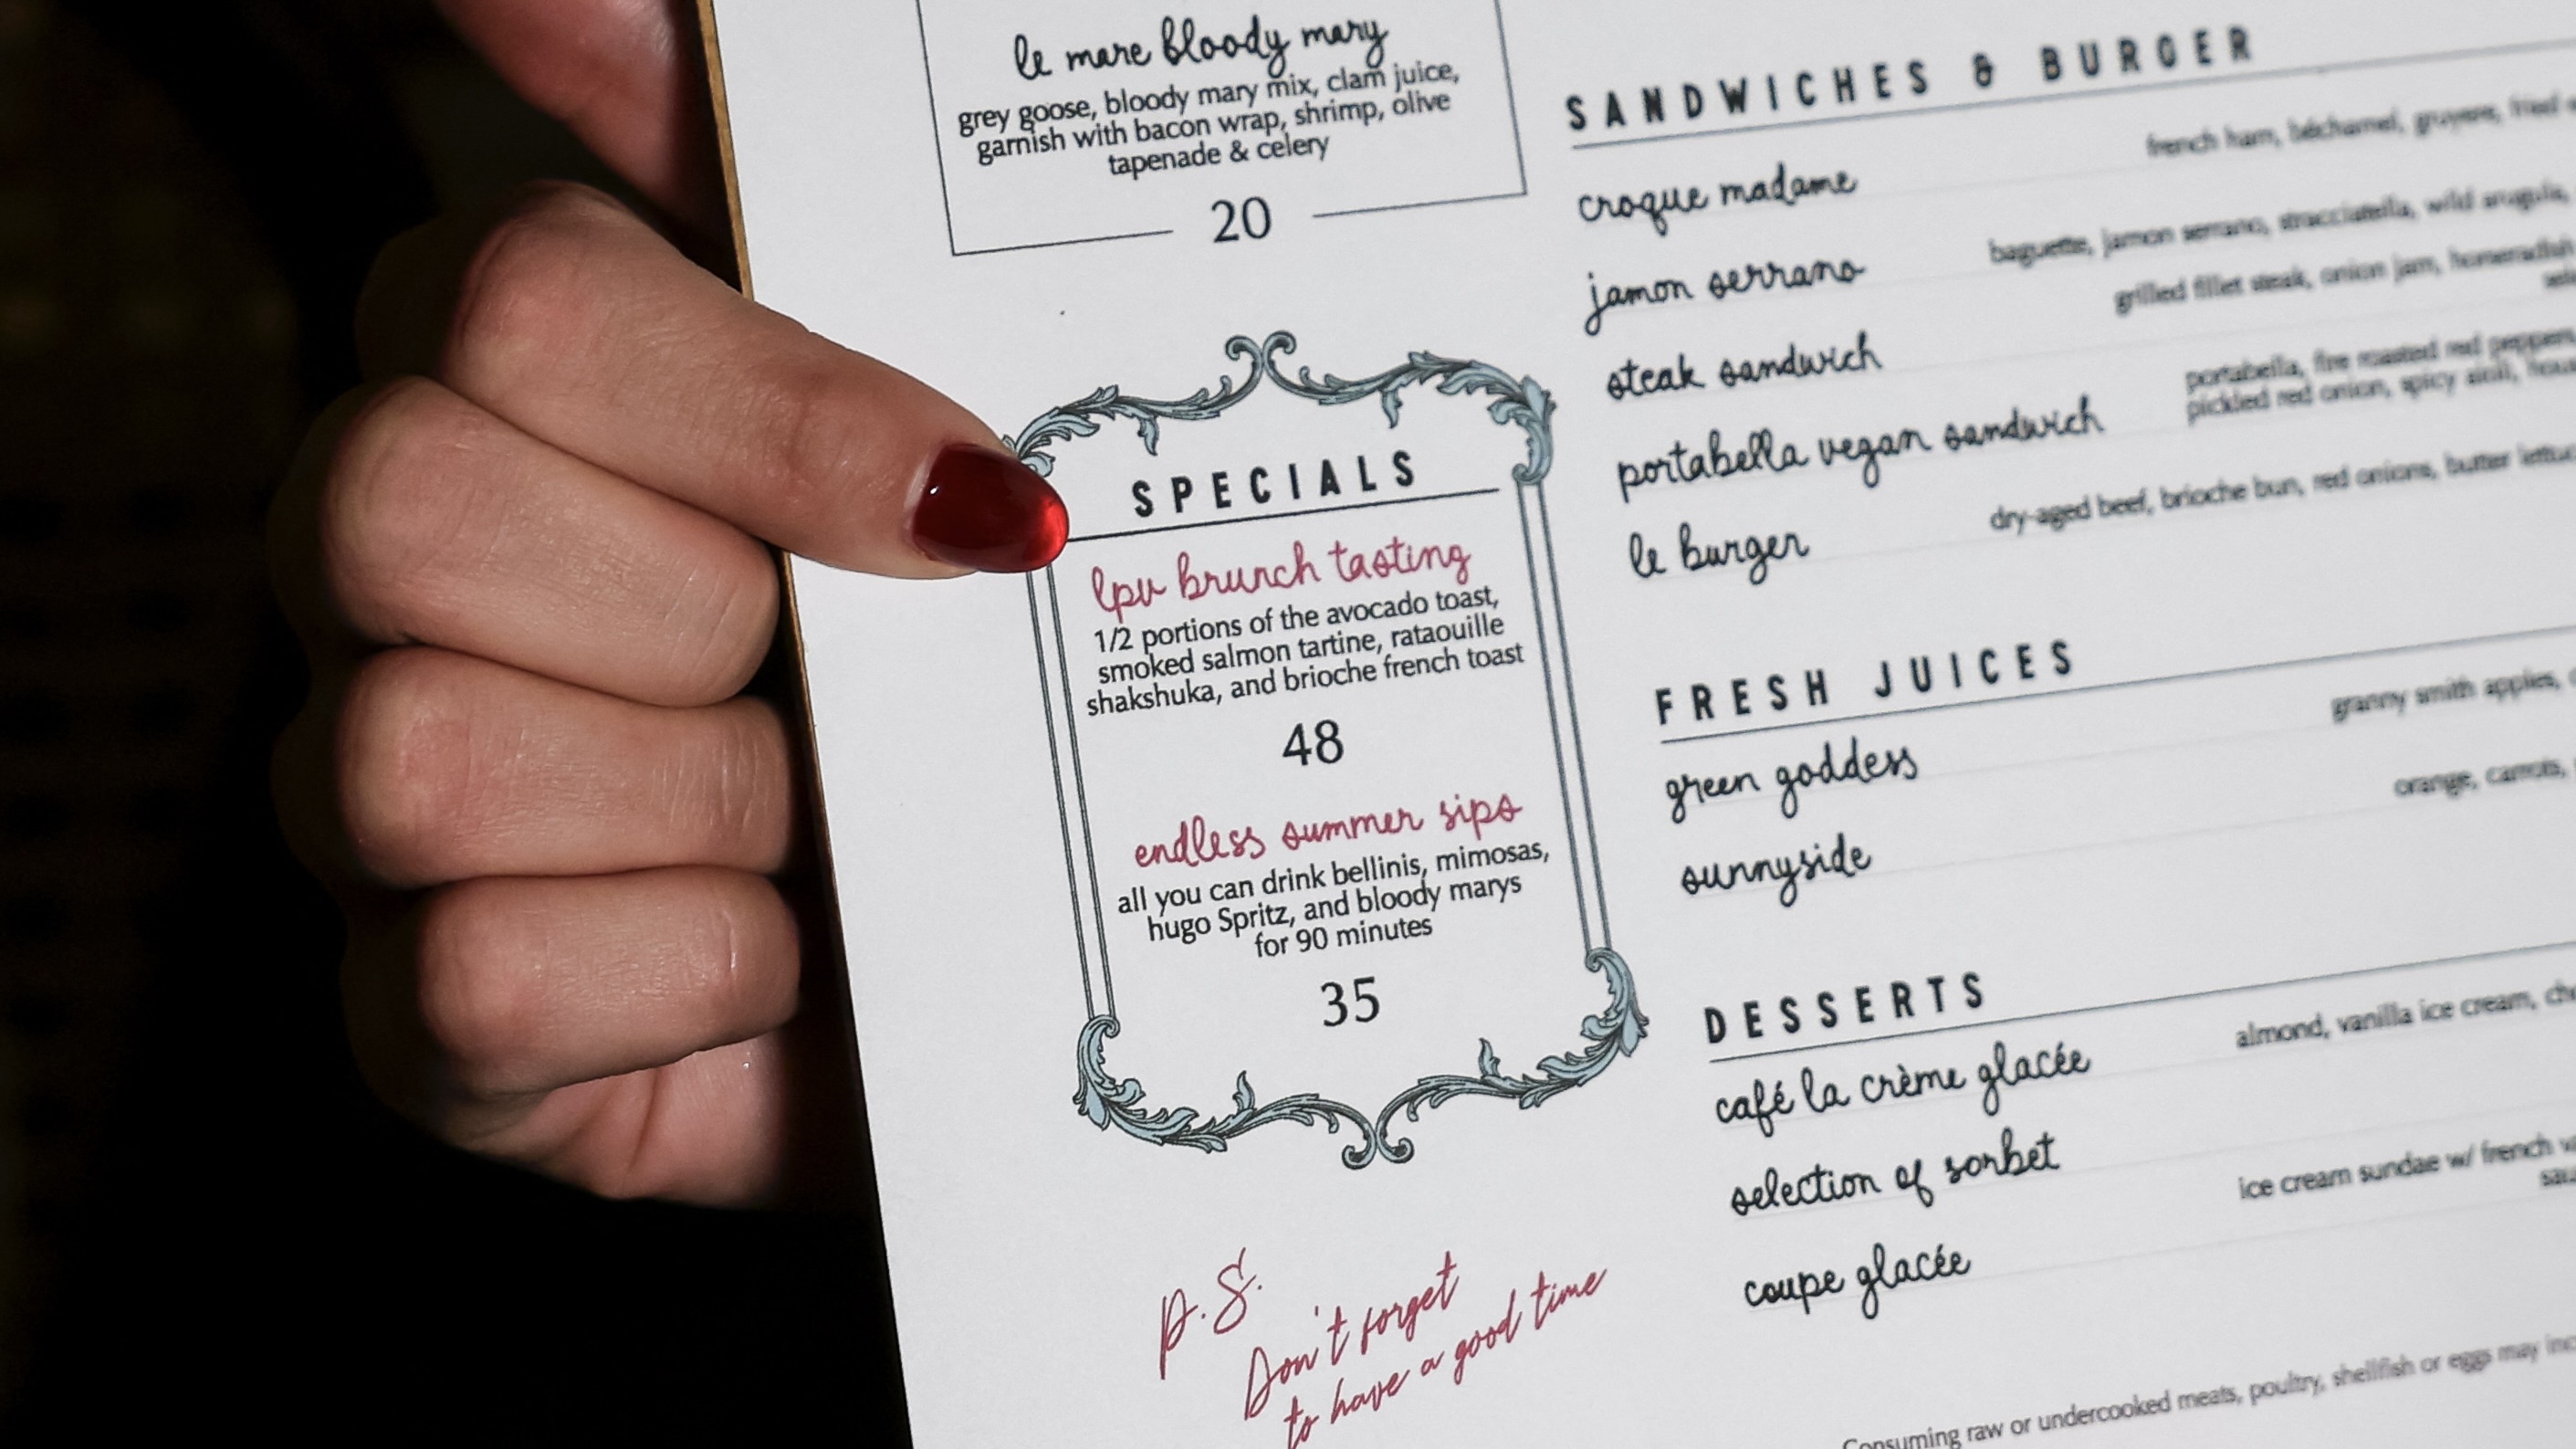 le mare bloody mary
grey goose, bloody mary mix, clam juice,
garnish with bacon wrap, shrimp, olive
tapenade & celery
20
SPECIALS
lpv brunch tasting
1/2 portions of the avocado toast,
smoked salmon tartine, rataouille
shakshuka, and brioche french toast
48
endless summer sips
all you can drink bellinis, mimosas,
hugo Spritz, and bloody marys
for 90 minutes
35
P.S.
Don't forget
to have a good time
SANDWICHES & BURGER
french ham, béchamel, gruyere, fried
croque madame
baguette, jamon serrano, stracciatella, wild arugula,
jamon serrano
grilled fillet steak, onion jam, horseradish
steak sandwich
portabella, fire roasted red peppers
pickled red onion, spicy aioli,
portabella vegan sandwich
dry-aged beef, brioche bun, red onions, butter
le burger
FRESH JUICES
granny smith apples,
green goddess
orange, carrots,
sunnyside
DESSERTS
almond, vanilla ice cream,
café la crème glacée
selection of sorbet
ice cream sundae w/ french
coupe glacée
Consuming raw or undercooked meats, poultry, shellfish or eggs may